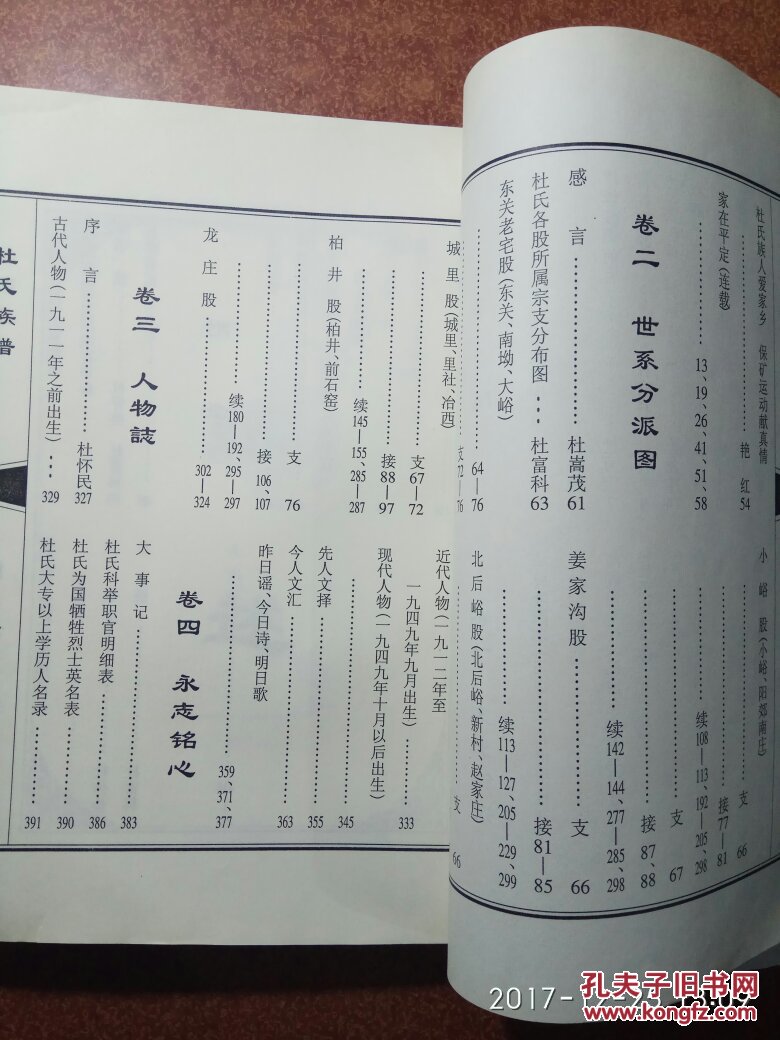 杜氏族人爱家乡 保矿运动献真情
艳红 54
家在平定(连载)
13、19、26、41、51、58
卷二 世系分派图
感言 杜嵩茂 61
杜氏各股所属宗支分布图 杜富科 63
东关老宅股(东关、南坳、大峪)
64—76
小峪股(小峪、阳郊南庄)
支 66
接 77—81
续 108—113、192—205、298
支 67
接 87、88
续 142—144、277—285、298
姜家沟股 支 66
接 81—85
续 113—127、205—229、299
北后峪股(北后峪、新村、赵家庄)
支 66
支 72—76
城里股(城里、里社、冶西)
支 67—72
接 88—97
续 145—155、285—287
柏井股(柏井、前石窑)
支 76
接 106、107
续 180—192、295—297
龙庄股 302—324
卷三 人物誌
序言 杜怀民 327
古代人物(一九一一年之前出生) 329
近代人物(一九一二年至
一九四九年九月出生) 333
现代人物(一九四九年十月以后出生)
345
先人文择 355
今人文汇 363
昨日谣、今日诗、明日歌
359、371、377
卷四 永志铭心
大事记 383
杜氏科举职官明细表 386
杜氏为国牺牲烈士英名表 390
杜氏大专以上学历人名录 391
杜氏族谱
2017-12-2
孔夫子旧书网
www.kongfz.com